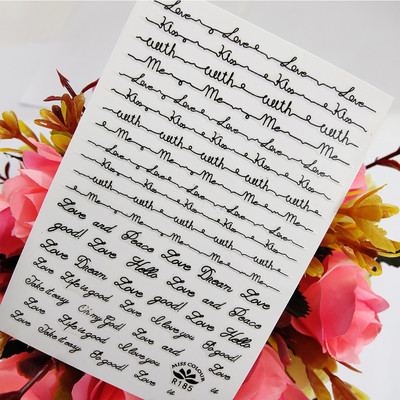 Love Love Love Love
Kiss Kiss Kiss Kiss
with with with with
Me Me Me Me
Love Love Love Love
Kiss Kiss Kiss Kiss
with with with with
Me Me Me Me
Love Love Love Love
Kiss Kiss Kiss Kiss
with with with with
Me Me Me Me
Love and Peace Love Dream Love
good! Love Hello Love and Peace
Love Dream Love good! Love Hello
Love Life is good Love and Love
Take it easy Oh my God! I love you So good!
Love Life is good Love
Take it easy I love you So good! Love is
MISS COLOUR
R185
is